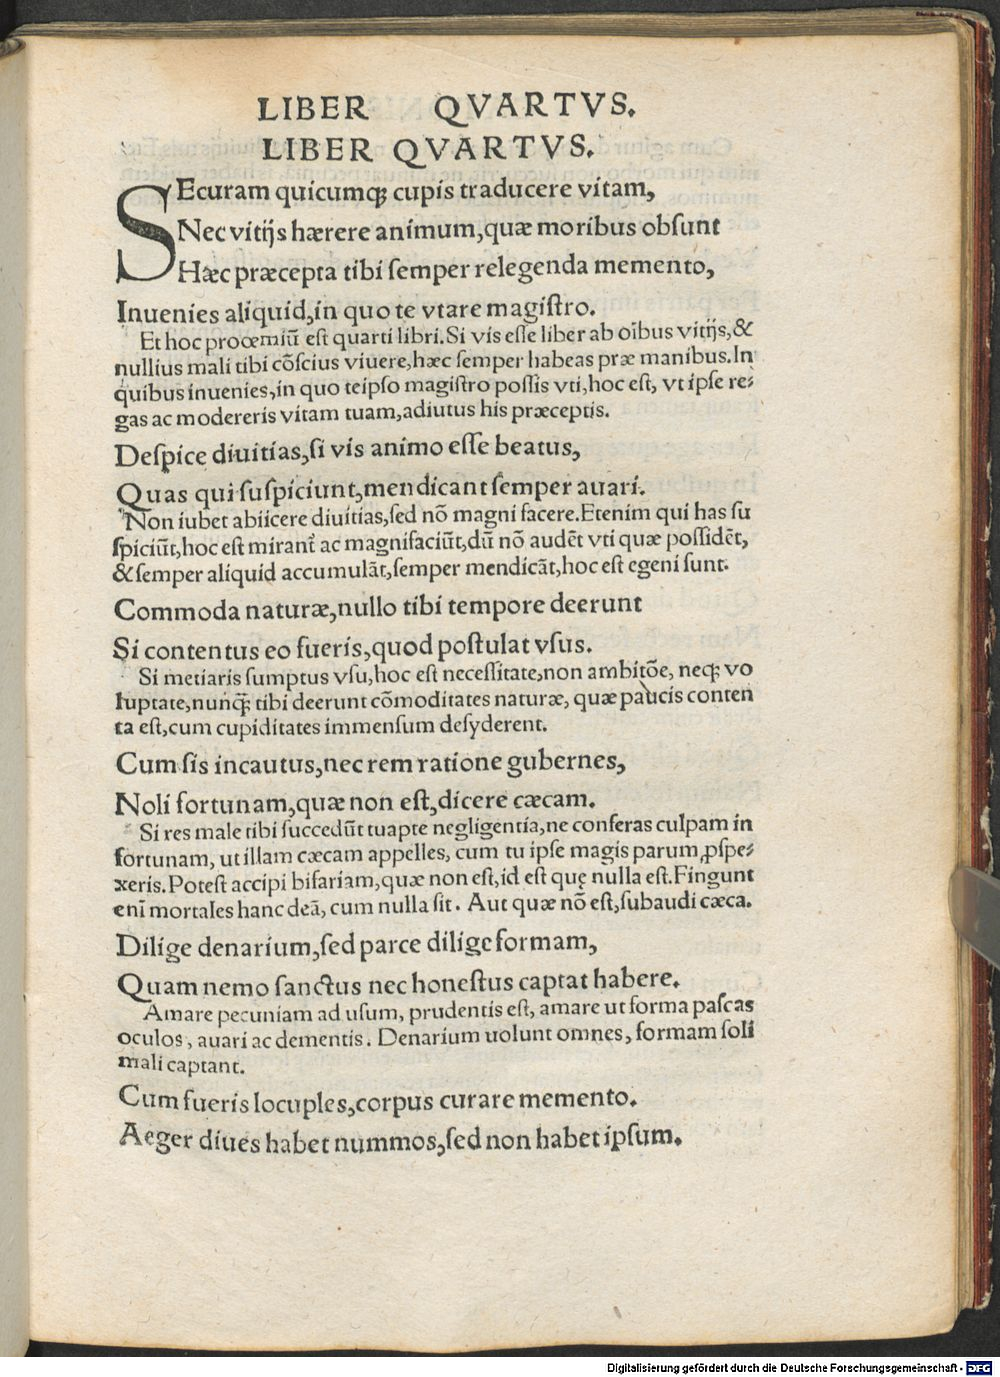 LIBER QVARTVS.
LIBER QVARTVS.
SEcuram quicumq; cupis traducere vitam,
Nec vitijs hærere animum,quæ moribus obsunt
Hæc præcepta tibi semper relegenda memento,
Inuenies aliquid,in quo te vtare magistro.
Et hoc proœmiū est quarti libri.Si vis esse liber ab oībus vitijs,&
nullius mali tibi cōscius viuere,hæc semper habeas præ manibus.In
quibus inuenies,in quo teipso magistro possis vti,hoc est, vt ipse re-
gas ac modereris vitam tuam,adiutus his præceptis.
Despice diuitias,si vis animo esse beatus,
Quas qui suspiciunt,mendicant semper auari.
Non iubet abiicere diuitias,sed nō magni facere.Etenim qui has su
spiciūt,hoc est mirant̄ ac magnifaciūt,dū nō audēt vti quæ possidēt,
&semper aliquid accumulāt,semper mendicāt,hoc est egeni sunt.
Commoda naturæ,nullo tibi tempore deerunt
Si contentus eo fueris,quod postulat vsus.
Si metiaris sumptus vsu,hoc est necessitate,non ambitōe, neq; vo
luptate,nunq̄; tibi deerunt cōmoditates naturæ, quæ paucis conten
ta est,cum cupiditates immensum desyderent.
Cum sis incautus,nec rem ratione gubernes,
Noli fortunam,quæ non est,dicere cæcam.
Si res male tibi succedūt tuapte negligentia,ne conferas culpam in
fortunam, ut illam cæcam appelles, cum tu ipse magis parum ꝓspe-
xeris.Potest accipi bifariam,quæ non est,id est quę nulla est.Fingunt
enī mortales hanc deā, cum nulla sit. Aut quæ nō est,subaudi cæca.
Dilige denarium,sed parce dilige formam,
Quam nemo sanctus nec honestus captat habere.
Amare pecuniam ad usum, prudentis est, amare ut forma pascas
oculos, auari ac dementis. Denarium uolunt omnes, formam soli
mali captant.
Cum fueris locuples,corpus curare memento.
Aeger diues habet nummos,sed non habet ipsum.
Digitalisierung gefördert durch die Deutsche Forschungsgemeinschaft - DFG